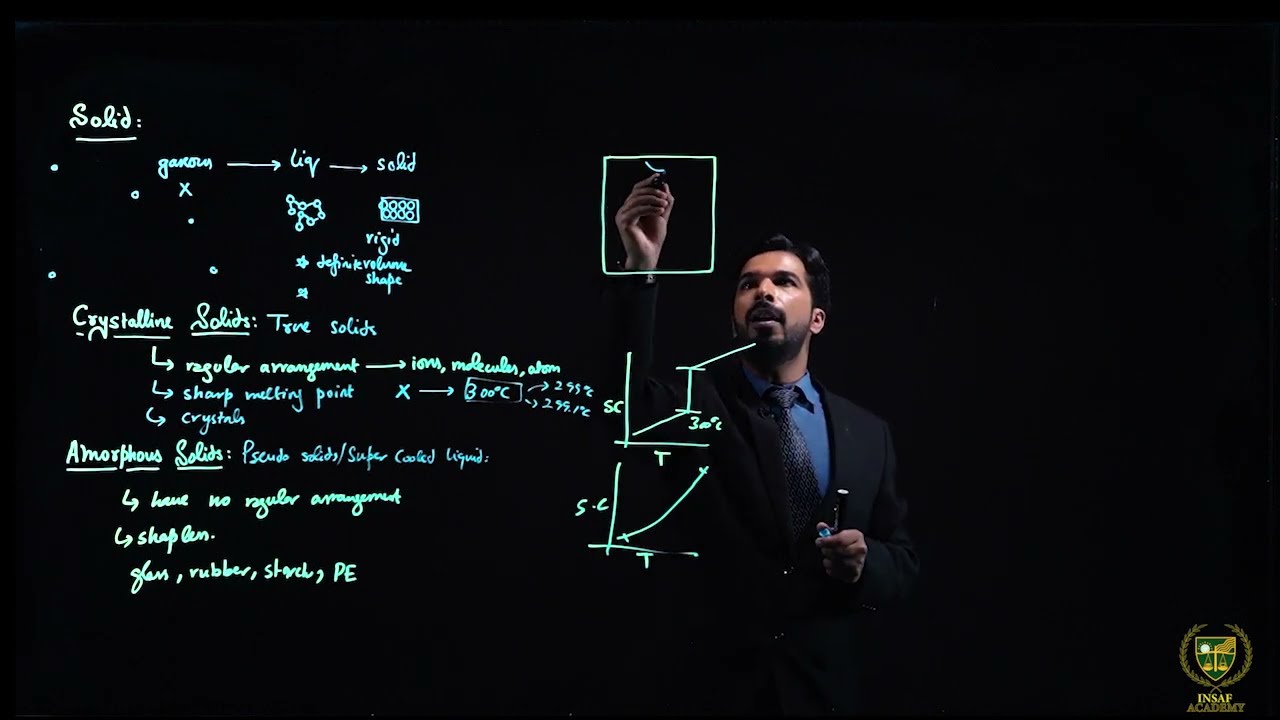 Solid:
gaseous → liq → solid
x
rigid
definite volume
shape
Crystalline Solids: True solids
↳ regular arrangement → ions, molecules, atom
↳ sharp melting point X → 300°C → 299°C
→ 299.1°C
↳ crystals
Amorphous Solids: Pseudo solids/Super Cooled liquid:
↳ have no regular arrangement
↳ shapless.
glass, rubber, starch, PE
SC
300°C
T
S.C
T
INSAF
ACADEMY